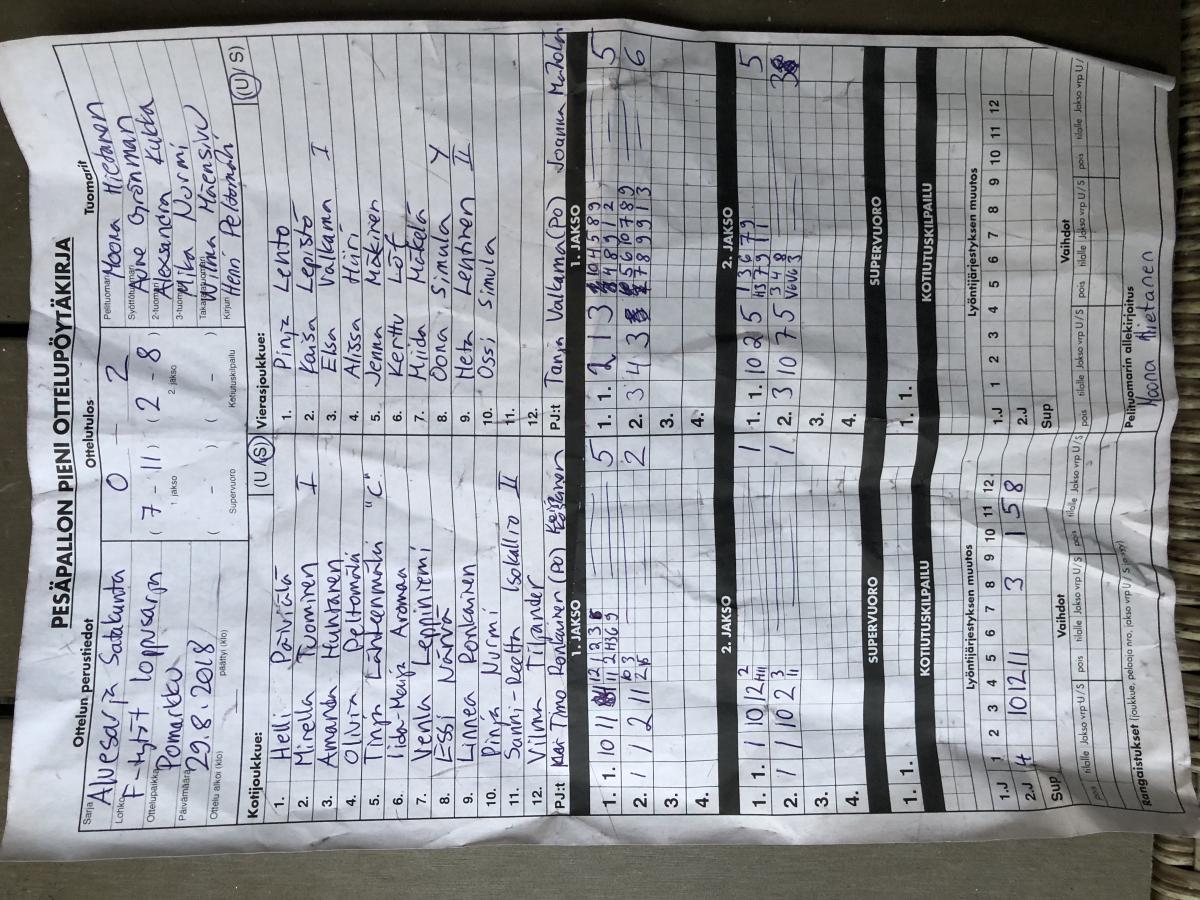 PESÄPALLON PIENI OTTELUPÖYTÄKIRJA
Ottelun perustiedot
Ottelutulos
Tuomarit
Sarja Aluesarja Satakunta
Lohko F-tytöt loppusarja
Ottelupaikka Pomarkku
Päivämäärä 29.8.2018
Ottelu alkoi (klo) päättyi (klo)
0 – 2
( 7 - 11 ) ( 2 - 8 )
1 jakso 2. jakso
( - ) ( - )
Supervuoro Kotiutuskilpailu
Pelituomari Moona Hietanen
Syöttötuomari Anne Grönman
2-tuomari Alexsandra Kukka
3-tuomari Mika Nurmi
Takarajatuomari Wilma Mäensivu
Kirjuri Henri Peldomäki
Kotijoukkue: (U S)
1. Helli Päivölä
2. Mirella Tuominen I
3. Amanda Huhtanen
4. Olivia Peltomäki
5. Tinja Lähteenmäki "C"
6. Iida-Maija Aroman
7. Venla Leppiniemi
8. Essi Närvä
9. Linnea Ronkainen
10. Pinja Nurmi
11. Sanni-Reetta Isokallio II
12. Vilma Tiljander
PJ:t Timo Ronkainen (PO)
Vierasjoukkue: (U S)
1. Pinja Lehto
2. Kaisa Lepistö
3. Elsa Valkama I
4. Alissa Hüri
5. Jenna Mäkinen
6. Kerttu Löf
7. Miida Mäkelä
8. Oona Simula Y
9. Heta Lehtinen II
10. Ossi Simula
11.
12.
PJ:t Tanja Valkama (PO) Joanna Mattola
1. JAKSO
1. JAKSO
1. 1. 10 11 5
2. 1 2 11 2
3.
4.
1. 1. 2 1 3 5
2. 3 4 3 6
3.
4.
2. JAKSO
2. JAKSO
1. 1. 1 10 12 1
2. 1 10 2 1
3.
4.
1. 1. 10 2 5 5
2. 3 10 7 5 3
3.
4.
SUPERVUORO
SUPERVUORO
KOTIUTUSKILPAILU
KOTIUTUSKILPAILU
1. 1.
1. 1.
Lyöntijärjestyksen muutos
1.J 1 2 3 4 5 6 7 8 9 10 11 12
2.J 4 10 12 11 3 1 5 8
Sup
Lyöntijärjestyksen muutos
1.J 1 2 3 4 5 6 7 8 9 10 11 12
2.J
Sup
Vaihdot
pois tilalle Jakso vrp U/S pois tilalle Jakso vrp U/S pois tilalle Jakso vrp U/S
Vaihdot
pois tilalle Jakso vrp U/S pois tilalle Jakso vrp U/S pois tilalle Jakso vrp U/S
Rangaistukset (joukkue, pelaaja nro, jakso vrp U/S ja syy)
Pelituomarin allekirjoitus
Moona Hietanen